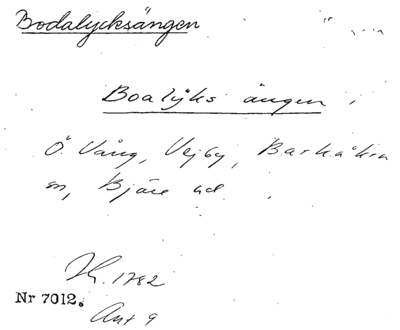 Bodalycksängen
Boalyks ängen
Ö. Vång, Vejby, Barkåkra
sn, Bjäre hd.
Lk. 1782
Nr 7012.
Ant 9